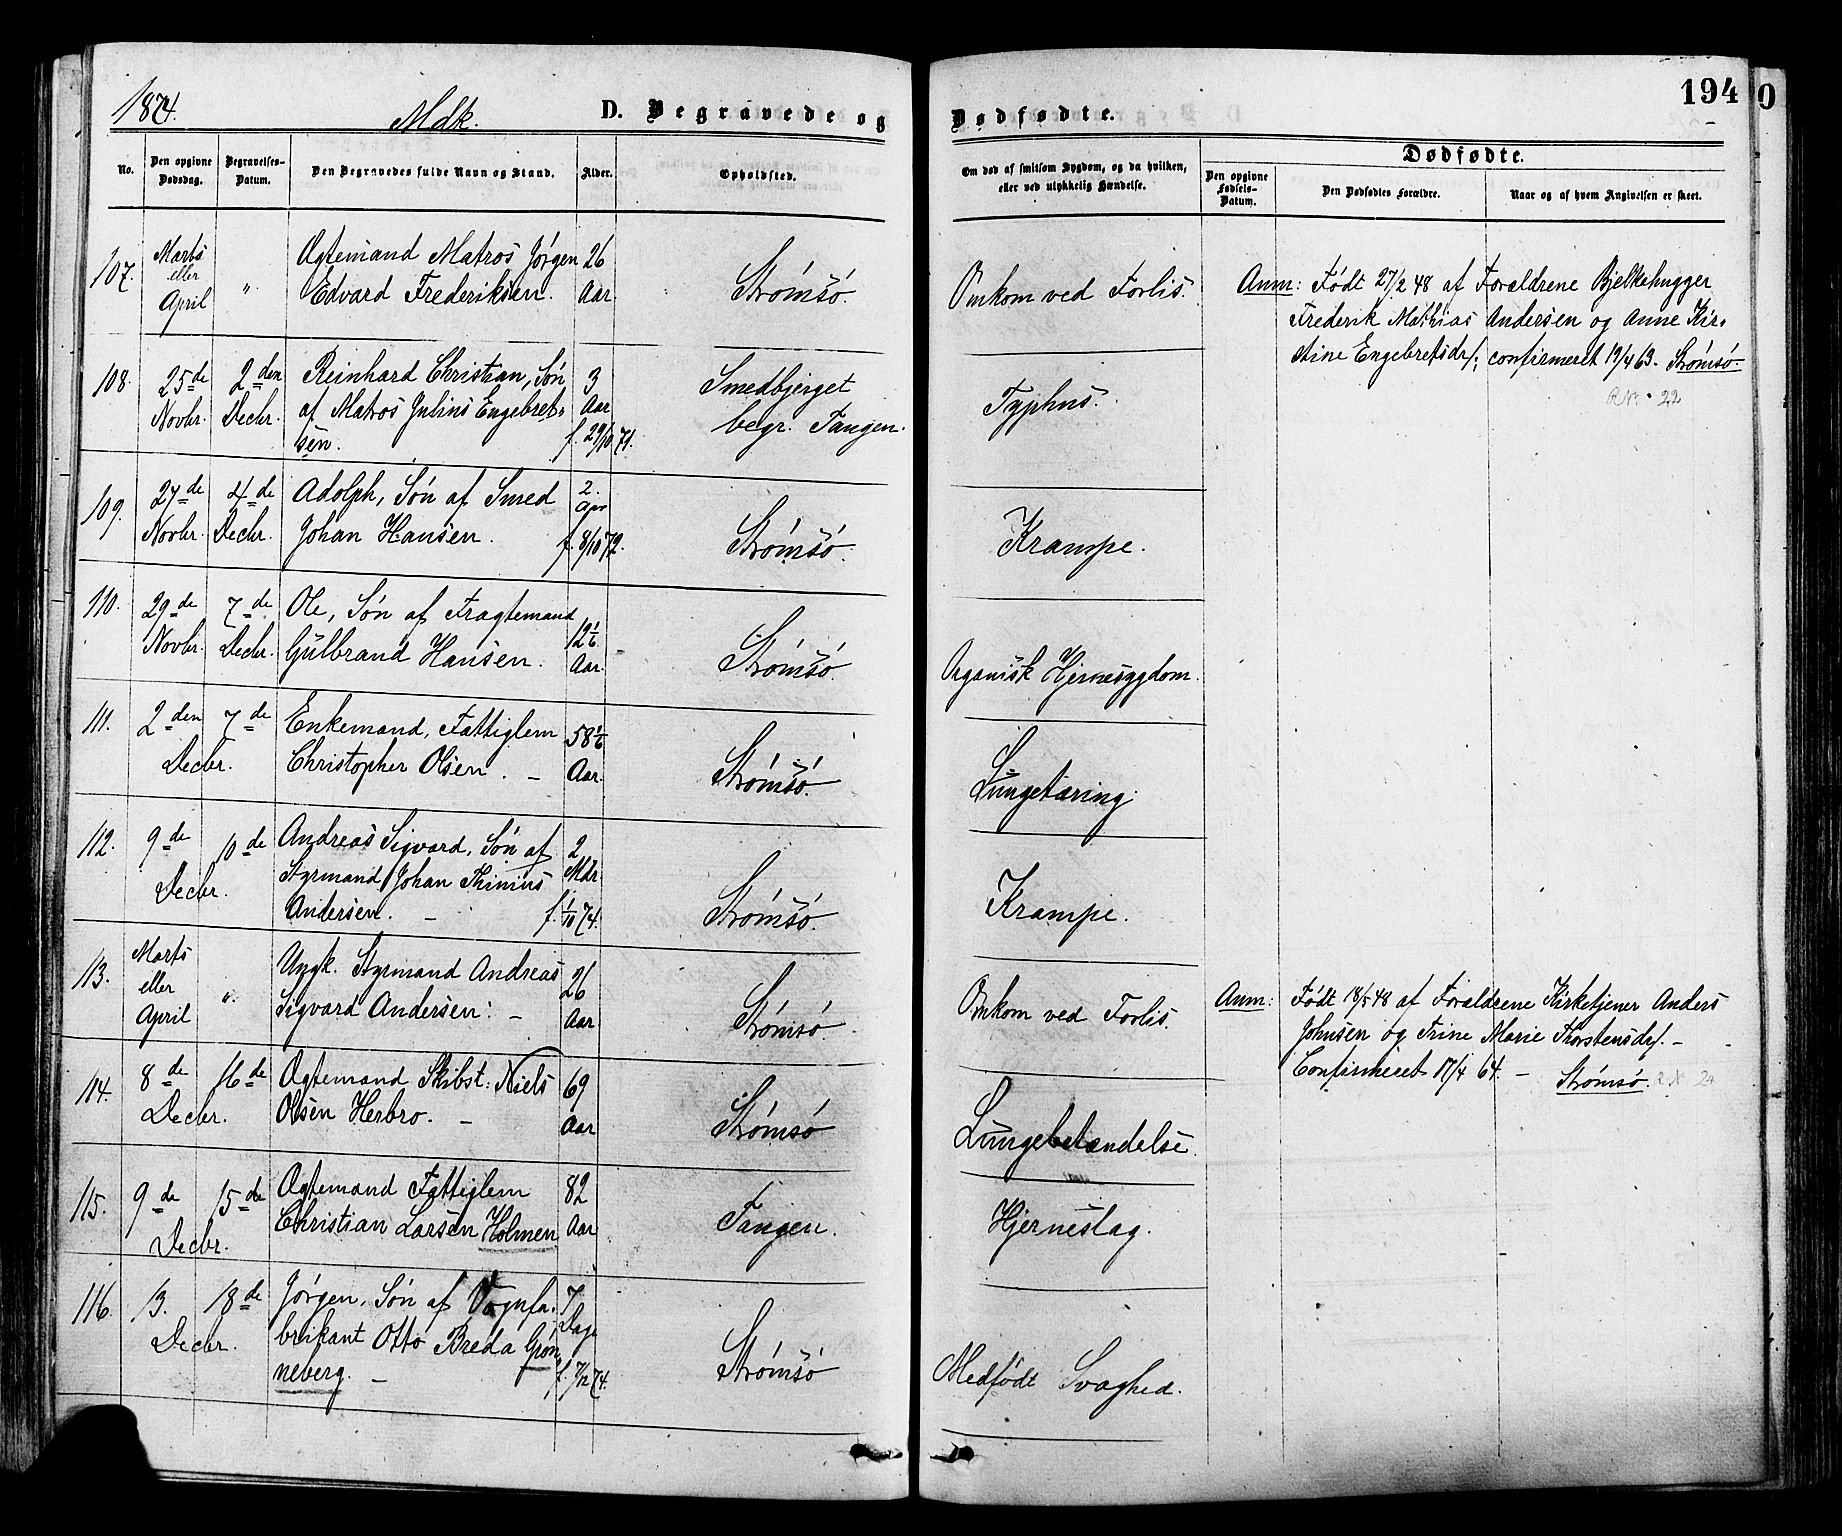 1874.
Mdk.
D. Begravede og
Dødfødte.
194
No.
Den opgivne Dødsdag.
Begravelses-Datum.
Den Begravedes fulde Navn og Stand.
Alder.
Opholdsted.
Om død af smitsom Sygdom, og da hvilken, eller ved ulykkelig Hændelse.
Dødfødte.
Den opgivne Fødsels-Datum.
Den Dødfødtes Forældre.
Naar og af hvem Angivelsen er skeet.
107. Marts eller April " Ægtemand Matros Jørgen
Edvard Frederiksen. 26 Aar. Strømsö. Omkom ved Forlis.
Anm: Født 27/2 48 af Forældrene Bjelkehugger
Frederik Mathias Andersen og Anne Kir-
stine Engebretsdr; confirmeret 19/4 63. Strømsö.
RNr. 22
108. 25de Novbr. 2den Decbr. Reinhard Christian, Søn
af Matros Julius Engebret-
sen. 3 Aar f. 29/10 71. Smedbjerget
begr. Tangen. Typhus.
109. 27de Novbr. 4de Decbr. Adolph, Søn af Smed
Johan Hansen. 2 Aar f. 8/10 72. Strømsö. Krampe.
110. 29de Novbr. 7de Decbr. Ole, Søn af Fragtemand
Gulbrand Hansen. 12 1/6 Aar. Strømsö. Organisk Hjernesygdom.
111. 2den 7de Decbr. Enkemand, Fattiglem
Christopher Olsen. – 58 1/6 Aar. Strømsö. Lungetæring.
112. 9de 10de Decbr. Andreas Sigvard, Søn af
Styrmand Johan Thinius
Andersen. – 2 Mdr f. 1/10 74. Strømsö. Krampe.
113. Marts eller April " Ungk. Styrmand Andreas
Sigvard Andersen. – 26 Aar Strømsö. Omkom ved Forlis.
Anm: Født 18/5 48 af Forældrene Kirketjener Anders
Johnsen og Trine Marie Thorstensdr. –
Confirmeret 17/4 64. – Strømsö. R.N. 24
114. 8de 16de Decbr. Ægtemand Skibst: Niels
Olsen Herbro. – 69 Aar Strømsö Lungebetændelse.
115. 9de 15de Decbr. Ægtemand Fattiglem
Christian Larsen Holmen 82 Aar Tangen. Hjerneslag.
116. 13. 18de Decbr. Jørgen, Søn af Vognfa-
brikant Otto Breda Grön-
neberg. – 7 Dage f. 7/12 74. Strømsö Medfødt Svaghed.